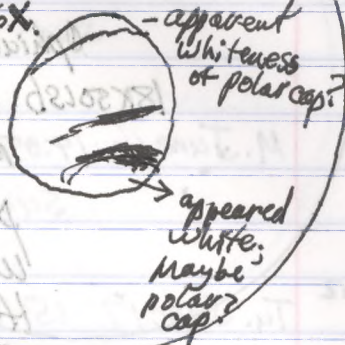 6X.
- apparent
whiteness
of polar cap?
appeared
white;
Maybe
polar
cap?